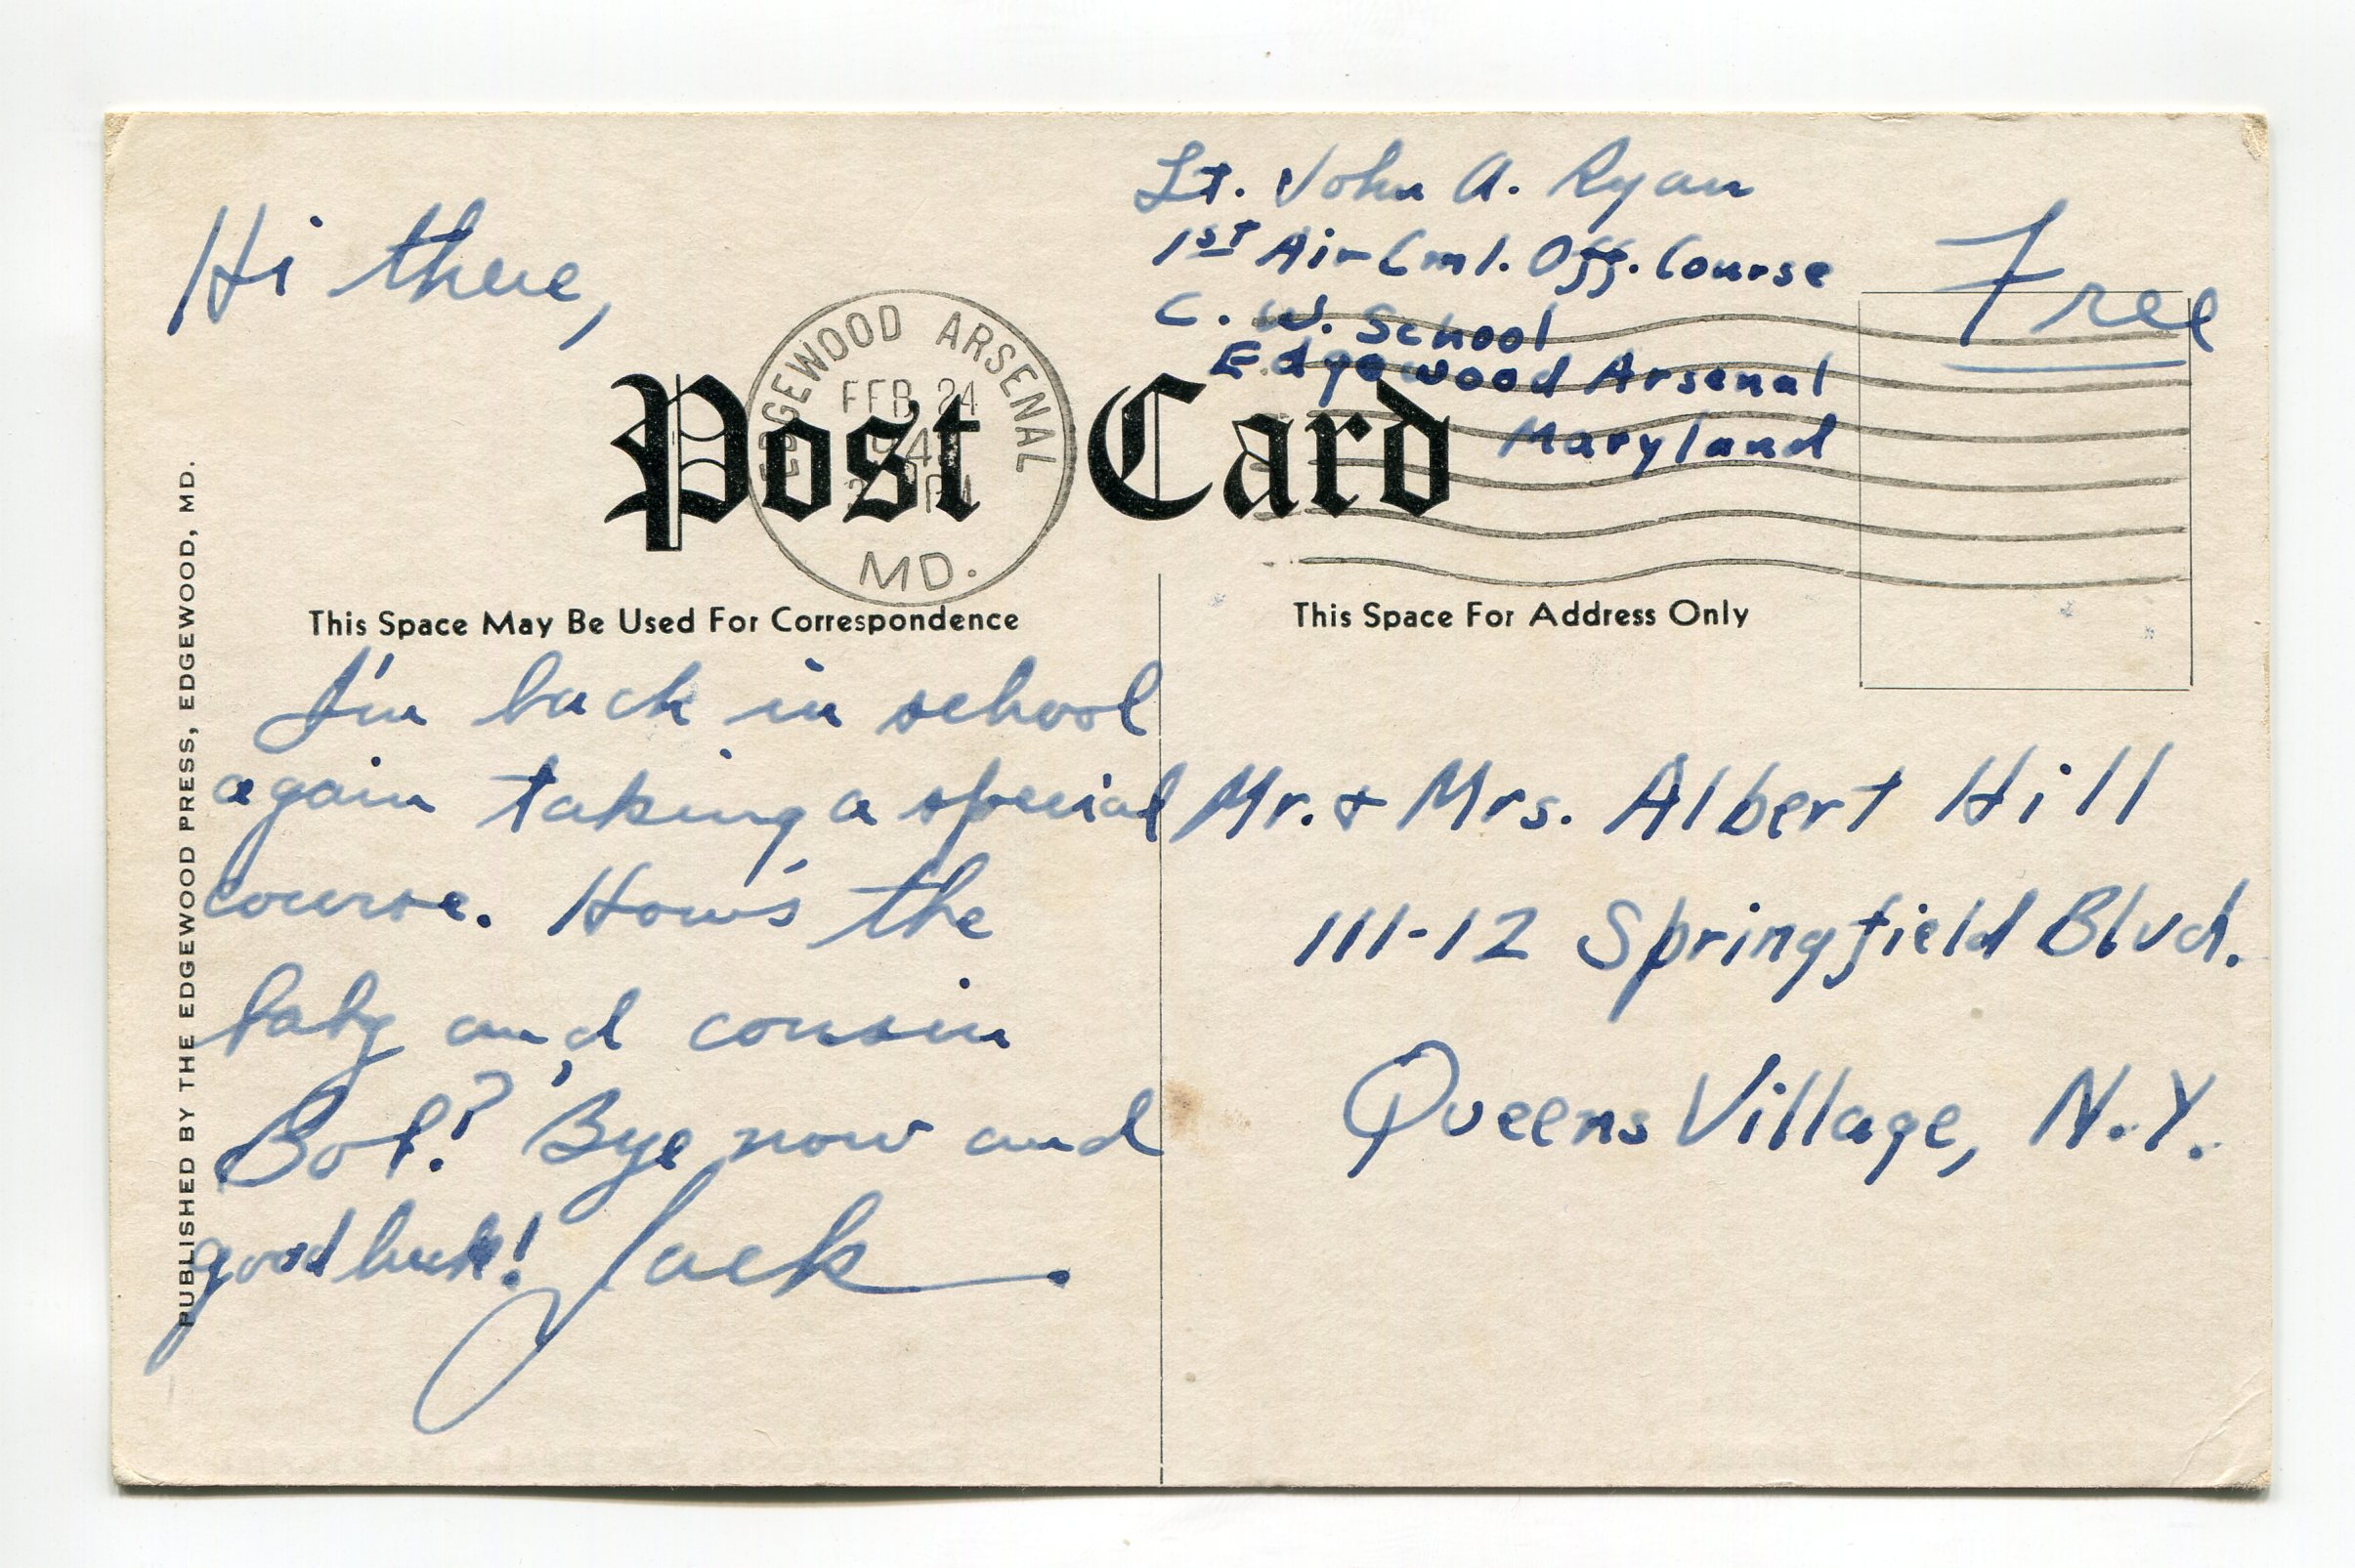 Lt. John A. Ryan
1st Air Cml. Off. Course
C. W. School
Edgewood Arsenal
Maryland
Free
Hi there,
EDGEWOOD ARSENAL
FEB 24
PM
MD.
Post Card
This Space May Be Used For Correspondence
This Space For Address Only
I'm back in school
again taking a special
course. How's the
baby and cousin
Bob? Bye now and
good luck! Jack
Mr. & Mrs. Albert Hill
111-12 Springfield Blvd.
Queens Village, N.Y.
PUBLISHED BY THE EDGEWOOD PRESS, EDGEWOOD, MD.